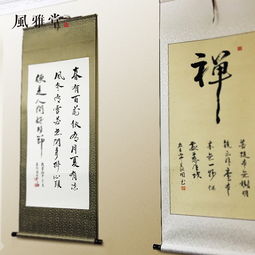 風雅堂
春有百花秋有月夏有涼
風冬有雪若無閑事掛心頭
便是人間好時節
禪
菩提本無樹明
鏡亦非臺本
來無一物何
處惹塵埃